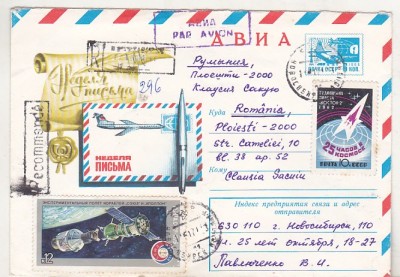 АВИА
PAR AVION
АВИА
Неделя
письма
296
Recommandé
НЕДЕЛЯ
ПИСЬМА
Румыния,
Плоешти-2000
Клаусия Сакую
Куда
România,
Ploiești-2000
Str. Cameliei, 10
bl. 38 ap. 52
Кому
Clausia Saciu
Индекс предприятия связи и адрес
отправителя
630110 г. Новосибирск, 110
ул. 25 лет октября, 18-27
Павлюченко В. И.
25 ЧАСОВ
В КОСМОСЕ
ПОЧТА 10 К СССР
12